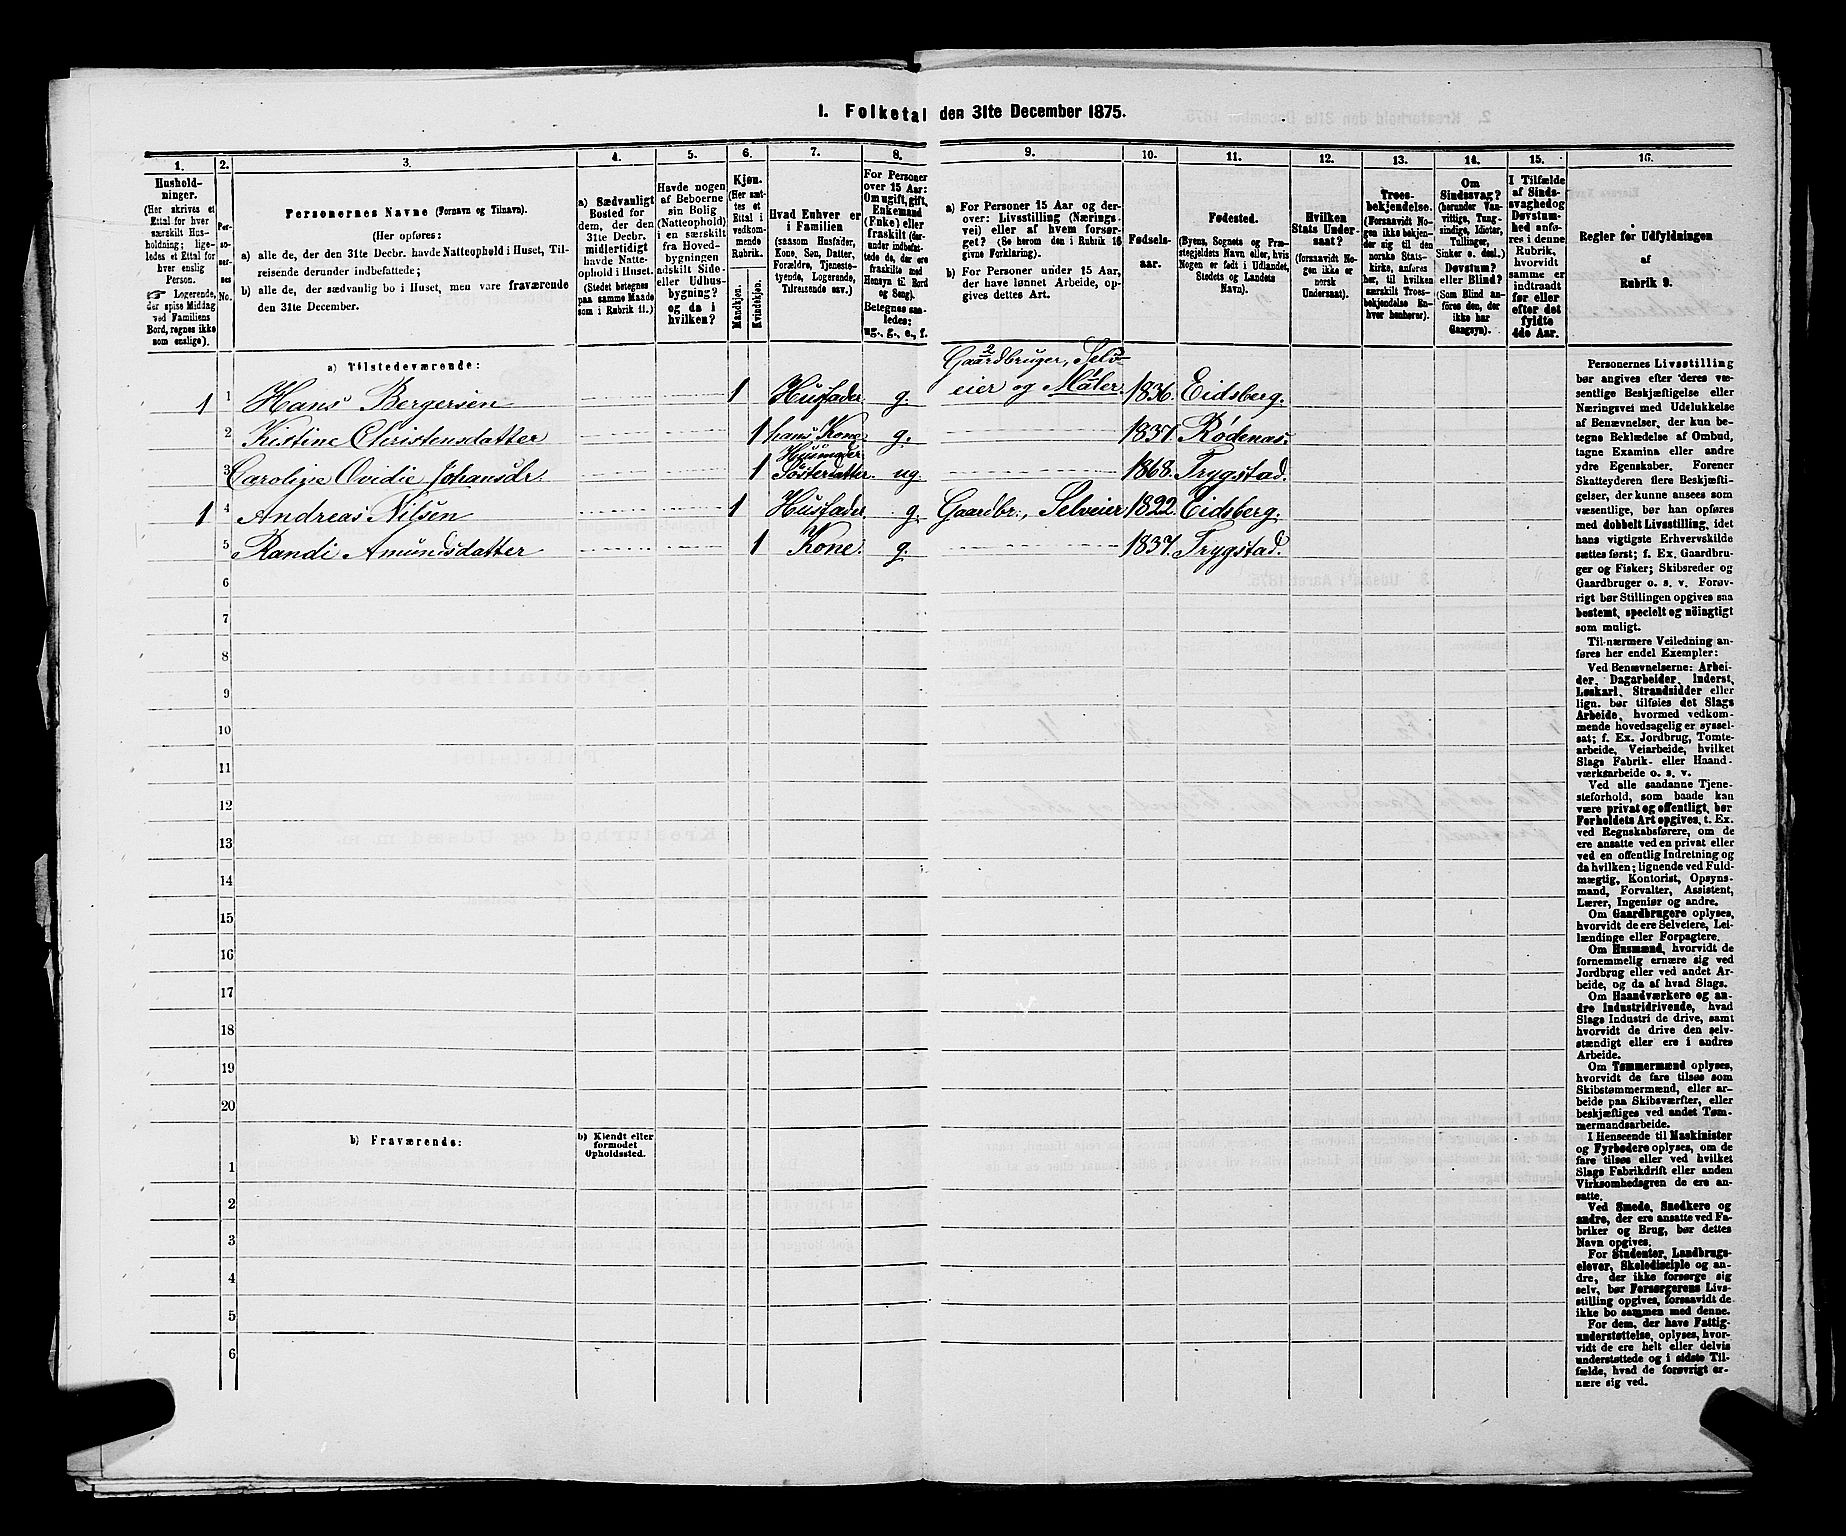 1. Folketal den 31te December 1875.
1. 2. 3. 4. 5. 6. 7. 8. 9. 10. 11. 12. 13. 14. 15. 16.
Husholdninger.
(Her skrives et
Ettal for hver
særskilt Husholdning;
ligeledes et Ettal for
hver enslig
Person.
☞ Logerende,
der spise Middag
ved Familiens
Bord, regnes ikke
som enslige).
Personernes No.
Personernes Navne (Fornavn og Tilnavn).
(Her opføres:
a) alle de, der den 31te Decbr. havde Natteophold i Huset, Tilreisende derunder indbefattede;
b) alle de, der sædvanlig bo i Huset, men vare fraværende
den 31te December.
a) Sædvanligt
Bosted for
dem, der den
31te Decbr.
midlertidigt
havde Natteophold i Huset.
(Stedet betegnes
paa samme Maade
som i Rubrik 11.)
Havde nogen
af Beboerne
sin Bolig
(Natteophold)
i en særskilt
fra Hovedbygningen
adskilt Side- eller Udhusbygning?
og da i
hvilken?
Kjøn.
(Her sættes et
Ettal i
vedkommende
Rubrik.
Mandkjøn. Kvindekjøn.
Hvad Enhver er
i Familien
(saasom Husfader,
Kone, Søn, Datter,
Forældre, Tjenestetyende, Logerende,
Tilreisende osv.)
For Personer
over 15 Aar:
Om ugift, gift,
Enkemand
(Enke) eller
fraskilt (derunder indbefattede de, der ere
fraskilte med
Hensyn til Bord
og Seng).
Betegnes saaledes:
ug., g., e., f.
a) For Personer 15 Aar og derover: Livsstilling (Næringsvei) eller af hvem forsørget? (Se herom den i Rubrik 16
givne Forklaring).
b) For Personer under 15 Aar,
der have lønnet Arbeide, opgives dettes Art.
Fødselsaar.
Fødested.
(Byens, Sognets og Præstegjeldets Navn eller, hvis
Nogen er født i Udlandet,
Stedets og Landets
Navn).
Hvilken
Stats Undersaat?
(forsaavidt Nogen ikke er
norsk
Undersaat).
Troesbekjendelse.
(Forsaavidt Nogen ikke bekjender sig til den
norske Statskirke, anføres
her, til hvilken
særskilt Troesbekjendelse Enhver henhører).
Om
Sindssvag?
(herunder Vanvittige, Tungsindige, Idioter,
Tullinger,
Sinker o. desl.).
Døvstum?
eller Blind?
(Som Blind anføres den, der
ikke har
Gangsyn).
I Tilfælde
af Sindssvaghed og
Døvstumhed anføres i denne
Rubrik,
hvorvidt
samme er
indtraadt
før eller
efter det
fyldte
4de Aar.
Regler for Udfyldningen
af
Rubrik 9.
a) Tilstedeværende:
1 1 Hans Bergersen 1 Husfader g. Gaardbruger, Selveier og Maler 1836. Eidsberg.
2 Kistine Christensdatter 1 hans Kone g. 1837. Rødenæs.
3 Caroline Ovidie Johansdr. 1 Husmoder Søsterdatter. ug. 1868. Trygstad.
1 4 Andreas Nilsen 1 Husfader g. Gaardbr., Selveier 1822. Eidsberg.
5 Randi Amundsdatter 1 Kone. g. 1837. Trygstad.
6
7
8
9
10
11
12
13
14
15
16
17
18
19
20
b) Fraværende:
b) Kjendt eller
formodet
Opholdssted.
1
2
3
4
5
6
Personernes Livsstilling
bør angives efter deres væsentlige Beskjæftigelse eller
Næringsvei med Udelukkelse
af Benævnelser, der kun betegne Beklædelse af Ombud,
tagne Examina eller andre
ydre Egenskaber. Forener
Skatteyderen flere Beskjæftigelser, der kunne ansees som
væsentlige, bør han opføres
med dobbelt Livsstilling, idet
hans vigtigste Erhvervskilde
sættes først; f. Ex. Gaardbruger og Fisker; Skibsreder og
Gaardbruger o. s. v. Forøvrigt bør Stillingen opgives saa
bestemt, specielt og nöiagtigt
som muligt.
Til nærmere Veiledning anføres her endel Exempler:
Ved Benævnelserne: Arbeider, Dagarbeider, Inderst,
Løskarl, Strandsidder eller
lign. bør tilføies det Slags
Arbeide, hvormed vedkommende hovedsagelig er sysselsat; f. Ex. Jordbrug, Tomtearbeide, Veiarbeide, hvilket
Slags Fabrik- eller Haandværksarbeide o. s. v.
Ved alle saadanne Tjenesteforhold, som baade kan
være privat og offentligt, bør
Forholdets Art opgives, t. Ex.
ved Regnskabsførere, om de
ere ansatte ved en privat eller
ved en offentlig Indretning og
da hvilken; lignende ved Fuldmægtig, Kontorist, Opsynsmand, Forvalter, Assistent,
Lærer, Ingeniør og andre.
Om Gaardbrugere oplyses,
hvorvidt de ere Selveiere, Leilændinge eller Forpagtere.
Om Husmænd, hvorvidt de
fornemmelig ernære sig ved
Jordbrug eller ved andet Arbeide, og da af hvad Slags.
Om Haandværkere og andre Industridrivende, hvad
Slags Industri de drive, samt
hvorvidt de drive den selvstændigt eller ere i andres
Arbeide.
Om Tømmermænd oplyses,
hvorvidt de fare tilsøs som
Skibstømmermænd, eller arbeide paa Skibsværfter, eller
beskjæftiges ved andet Tømmermandsarbeide.
I Henseende til Maskinister
og Fyrbødere oplyses, om de
fare tilsøs eller ved hvilket
Slags Fabrikdrift eller anden
Virksomhedsgren de ere ansatte.
Ved Smede, Snedkere og
andre, der ere ansatte ved Fabriker og Brug, bør dettes
Navn opgives.
For Studenter, Landbrugselever, Skoledisciple og andre, der ikke forsørge sig
selv, bør Forsørgerens Livsstilling opgives, forsaavidt de
ikke bo sammen med denne.
For dem, der have Fattigunderstøttelse, oplyses, hvorvidt de ere helt eller delvis
understøttede og i sidste Tilfælde, hvad de forøvrigt ernære sig ved.